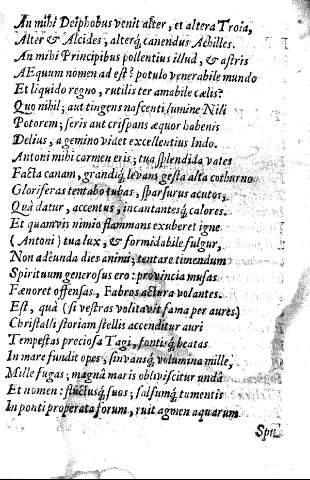 An mihi Deiphobus venit alter, et altera Troia,
Alter & Alcides, alterq́; canendus Achilles.
An mihi Principibus pollentius illud, & astris
AEquum nomen ad est? potulo venerabile mundo
Et liquido regno, rutilis ter amabile cælis?
Quo nihil; aut tingens nascenti lumine Nili
Potorem; seris aut crispans æquor habenis
Delius, a gemino videt excellentius Indo.
Antoni mihi carmen eris; tua splendida vates
Facta canam, grandiq́; levans gesta alta cothurno
Gloriferas tentabo tubas, sparsurus acutos,
Quà datur, accentus, incantantesq́; calores.
Et quamvis nimio flammans exuberet igne
(Antoni) tua lux, & formidabile fulgur,
Non adeunda dies animi; tentare timendum
Spirituum generosus ero: provincia musas
Fœnoret offensas, Fabros actura volantes.
Est, quà (si vestras volitavit fama per aures)
Christalli storiam stellis accenditur auri
Tempestas preciosa Tagi, fontisq́; beatas
In mare fundit opes, sinvansq́; volumina mille,
Mille fugas; magnâ maris obliviscitur undâ
Et nomen: fluctusq́; suos; salsumq́; tumentis
In ponti properata forum, ruit agmen aquarum
Spri